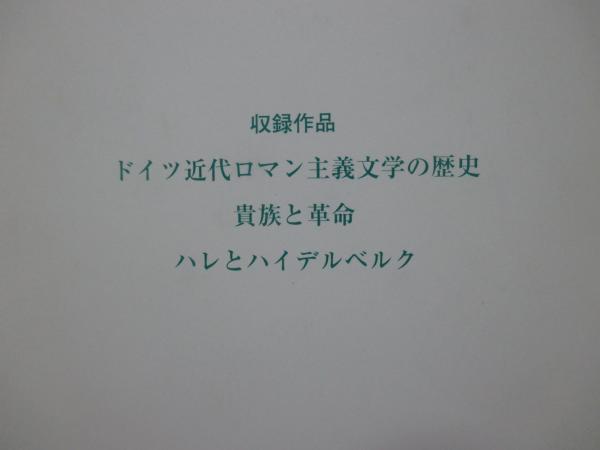 収録作品
ドイツ近代ロマン主義文学の歴史
貴族と革命
ハレとハイデルベルク